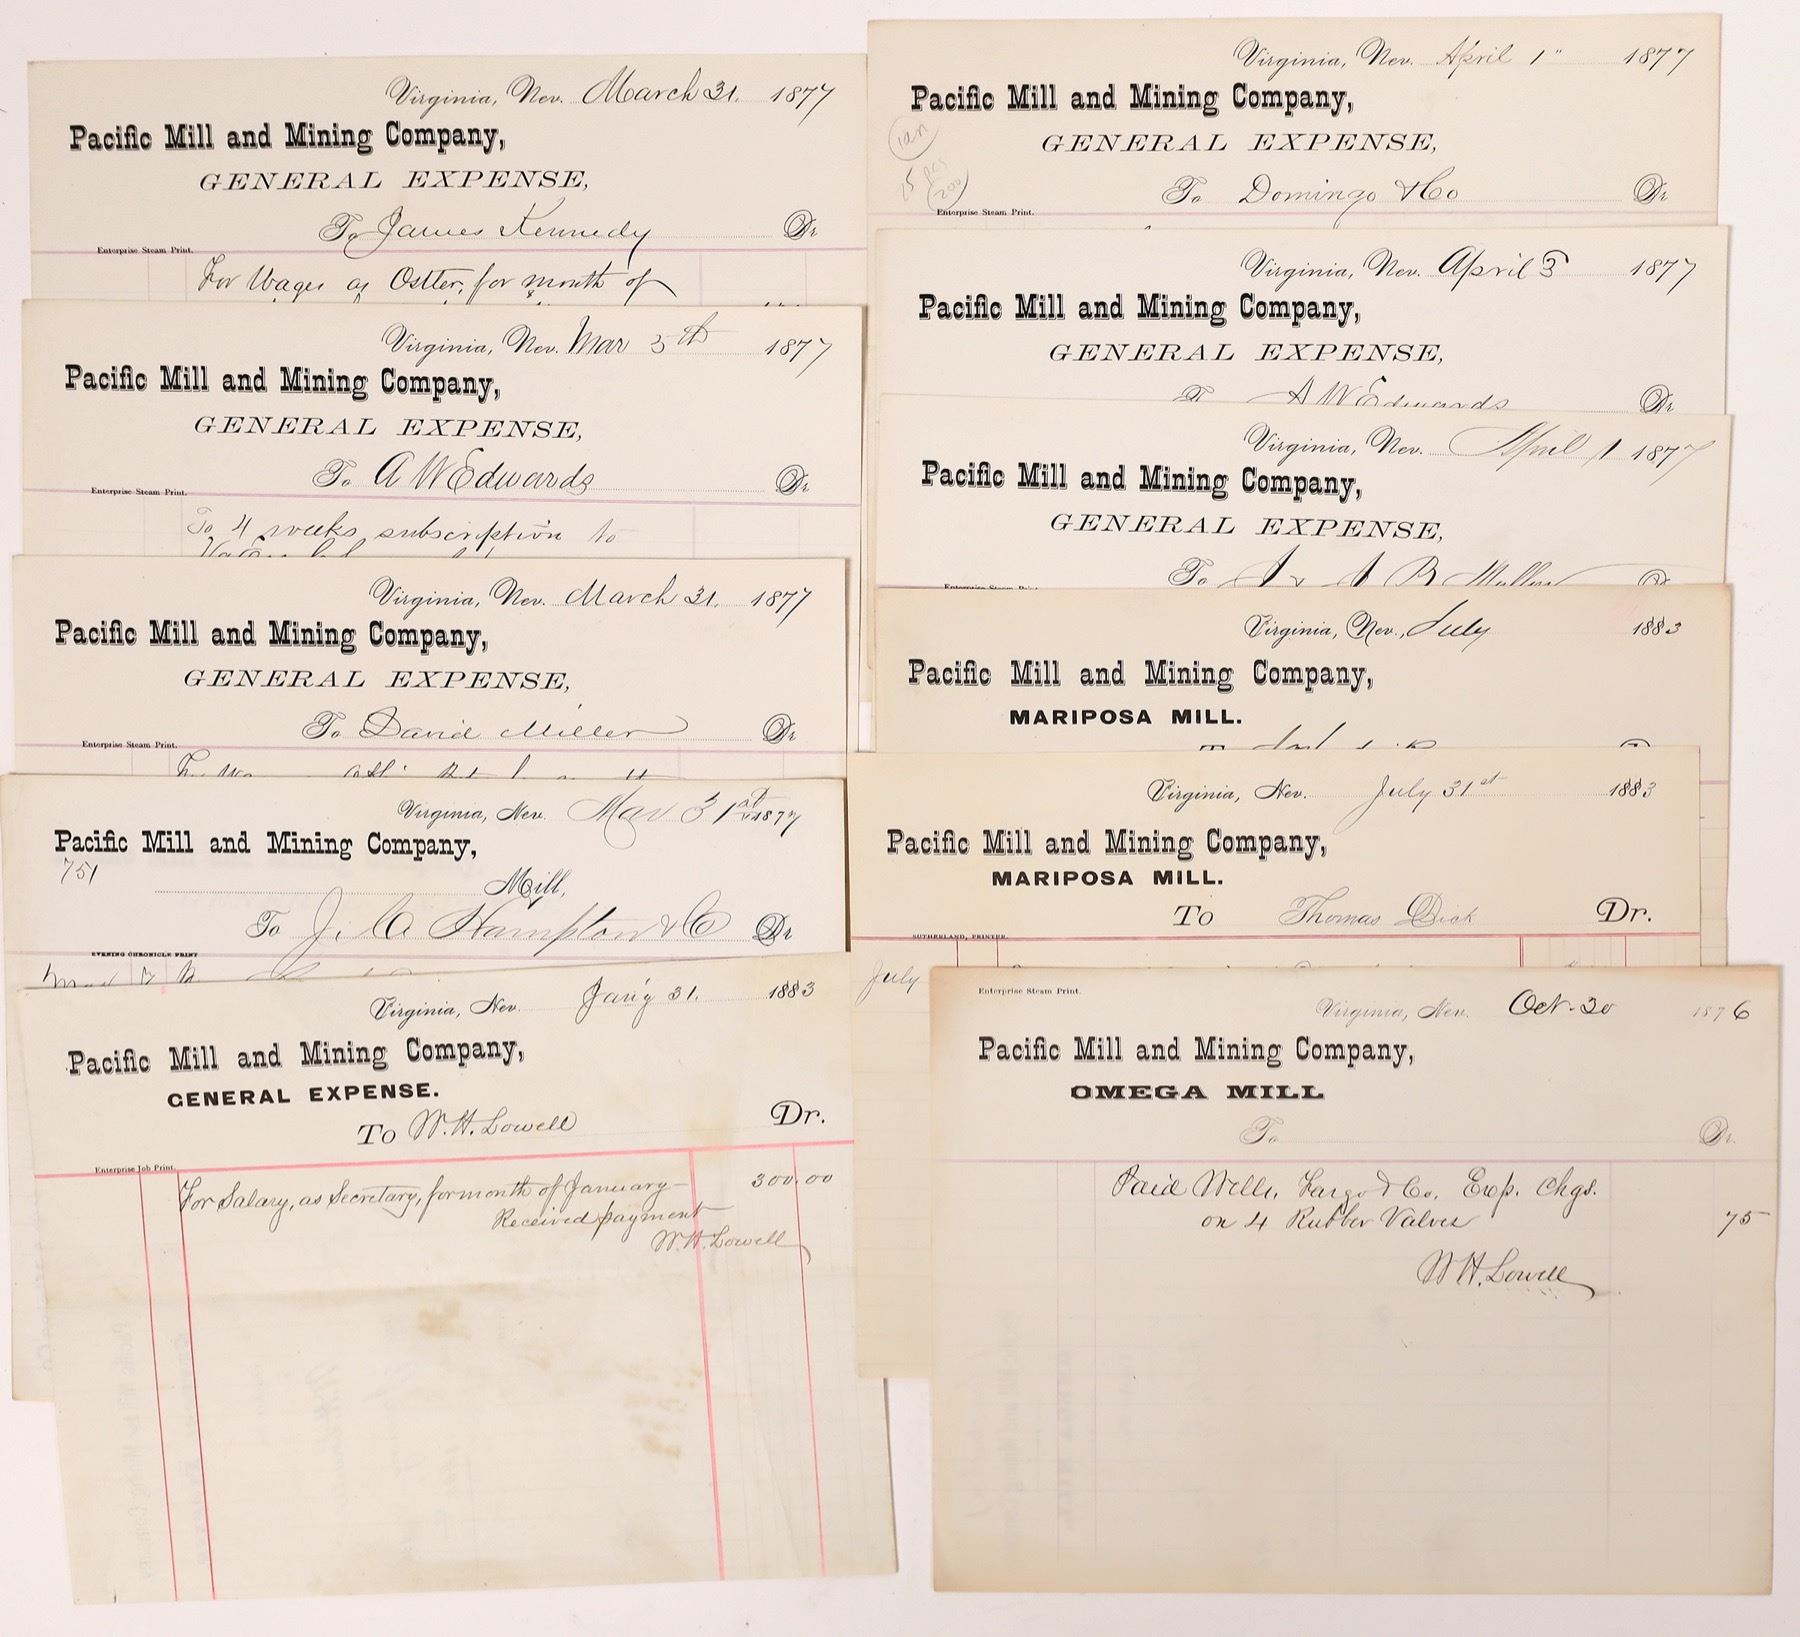 Virginia, Nev. March 31. 1877
Pacific Mill and Mining Company,
GENERAL EXPENSE,
To James Kennedy Dr
Enterprise Steam Print.
For Wages as Ostler, for month of
Virginia, Nev. Mar 5th 1877
Pacific Mill and Mining Company,
GENERAL EXPENSE,
To A W Edwards Dr
Enterprise Steam Print.
To 4 weeks subscription to
Virginia, Nev. March 31. 1877
Pacific Mill and Mining Company,
GENERAL EXPENSE,
To David Miller Dr
Enterprise Steam Print.
Virginia, Nev. Mar 31st 1877
Pacific Mill and Mining Company,
751
Mill,
To J. A. Hampton & Co Dr
EVENING CHRONICLE PRINT
Virginia, Nev. Jan'y 31. 1883
Pacific Mill and Mining Company,
GENERAL EXPENSE.
To W. H. Lowell Dr.
Enterprise Job Print.
For Salary, as Secretary, for month of January - 300.00
Received payment
W. H. Lowell
Virginia, Nev. April 1" 1877
Pacific Mill and Mining Company,
GENERAL EXPENSE,
To Domingo & Co Dr
15 pcs
200
Enterprise Steam Print.
Virginia, Nev. April 3 1877
Pacific Mill and Mining Company,
GENERAL EXPENSE,
To A W Edwards Dr
Virginia, Nev. April 1 1877
Pacific Mill and Mining Company,
GENERAL EXPENSE,
To Dr
Enterprise Steam Print.
Virginia, Nev., July 1883
Pacific Mill and Mining Company,
MARIPOSA MILL.
Virginia, Nev. July 31st 1883
Pacific Mill and Mining Company,
MARIPOSA MILL.
To Thomas Dick Dr.
SUTHERLAND, PRINTER.
July
Enterprise Steam Print.
Virginia, Nev. Oct. 30 1876
Pacific Mill and Mining Company,
OMEGA MILL
To Dr.
Paid Wells, Fargo & Co. Exp. Chgs.
on 4 Rubber Valves 75
W H. Lowell